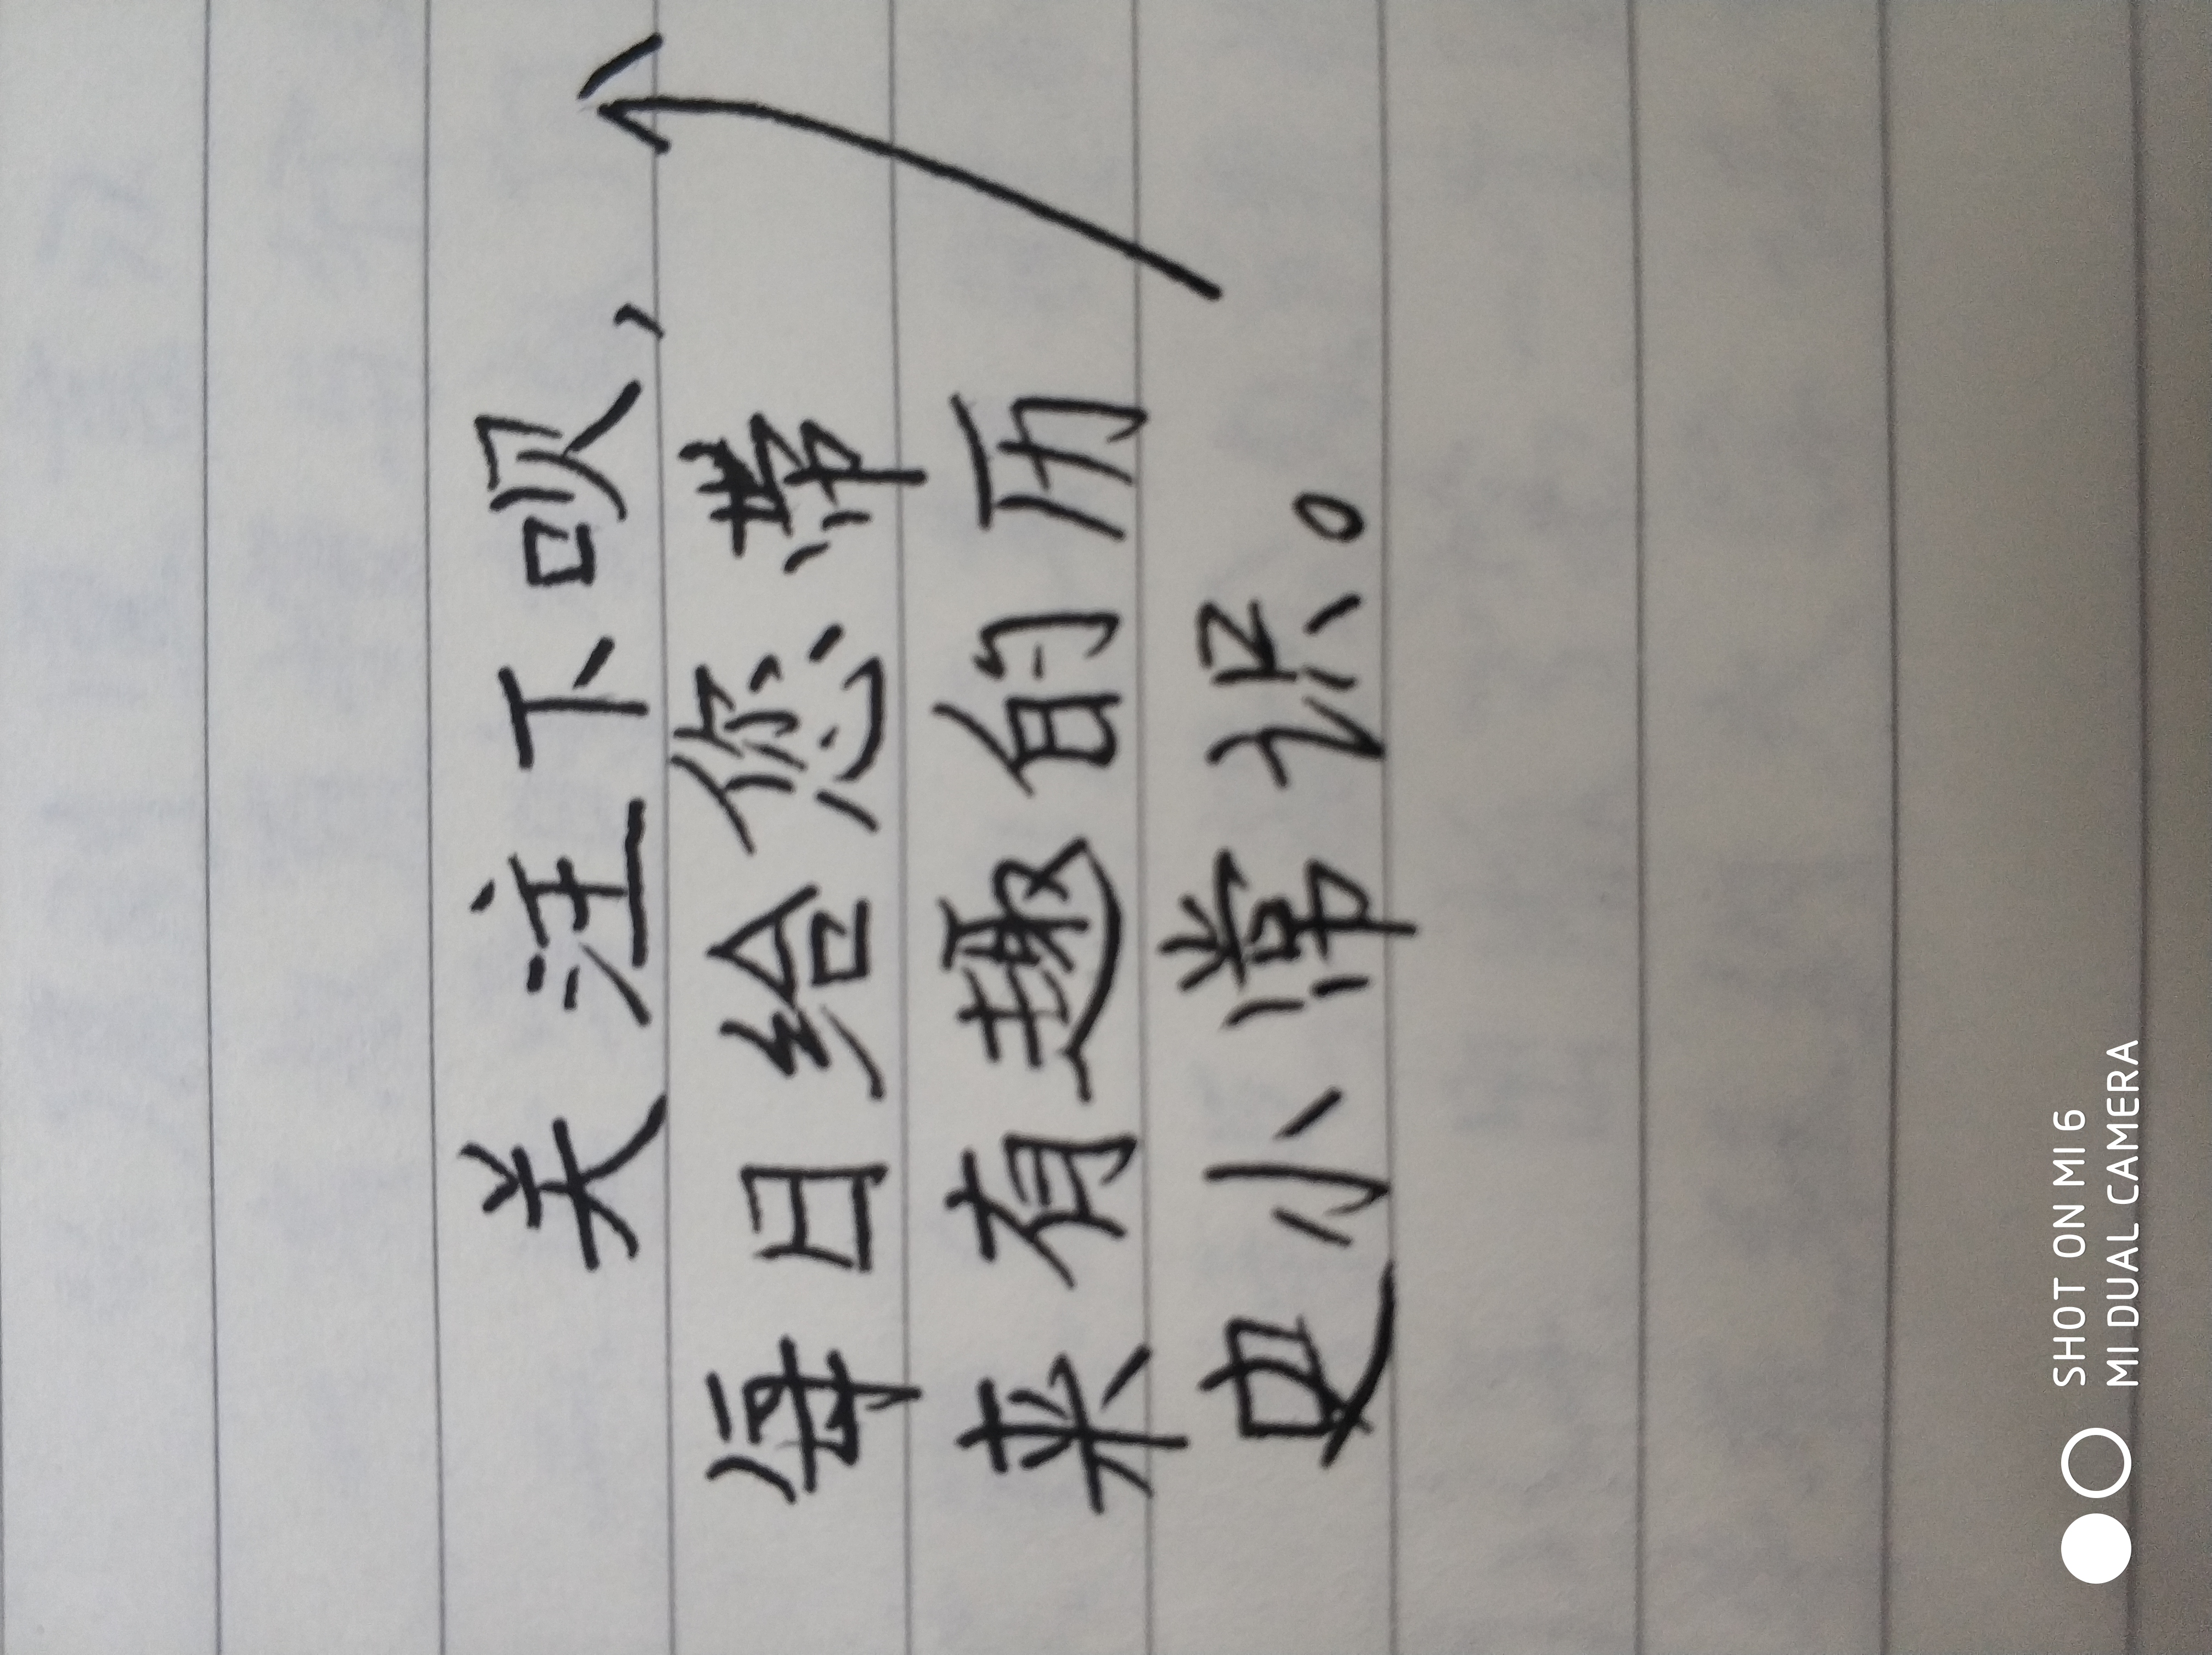 关注下呗，
每日给您带
来有趣的历
史小常识。
SHOT ON MI 6
MI DUAL CAMERA